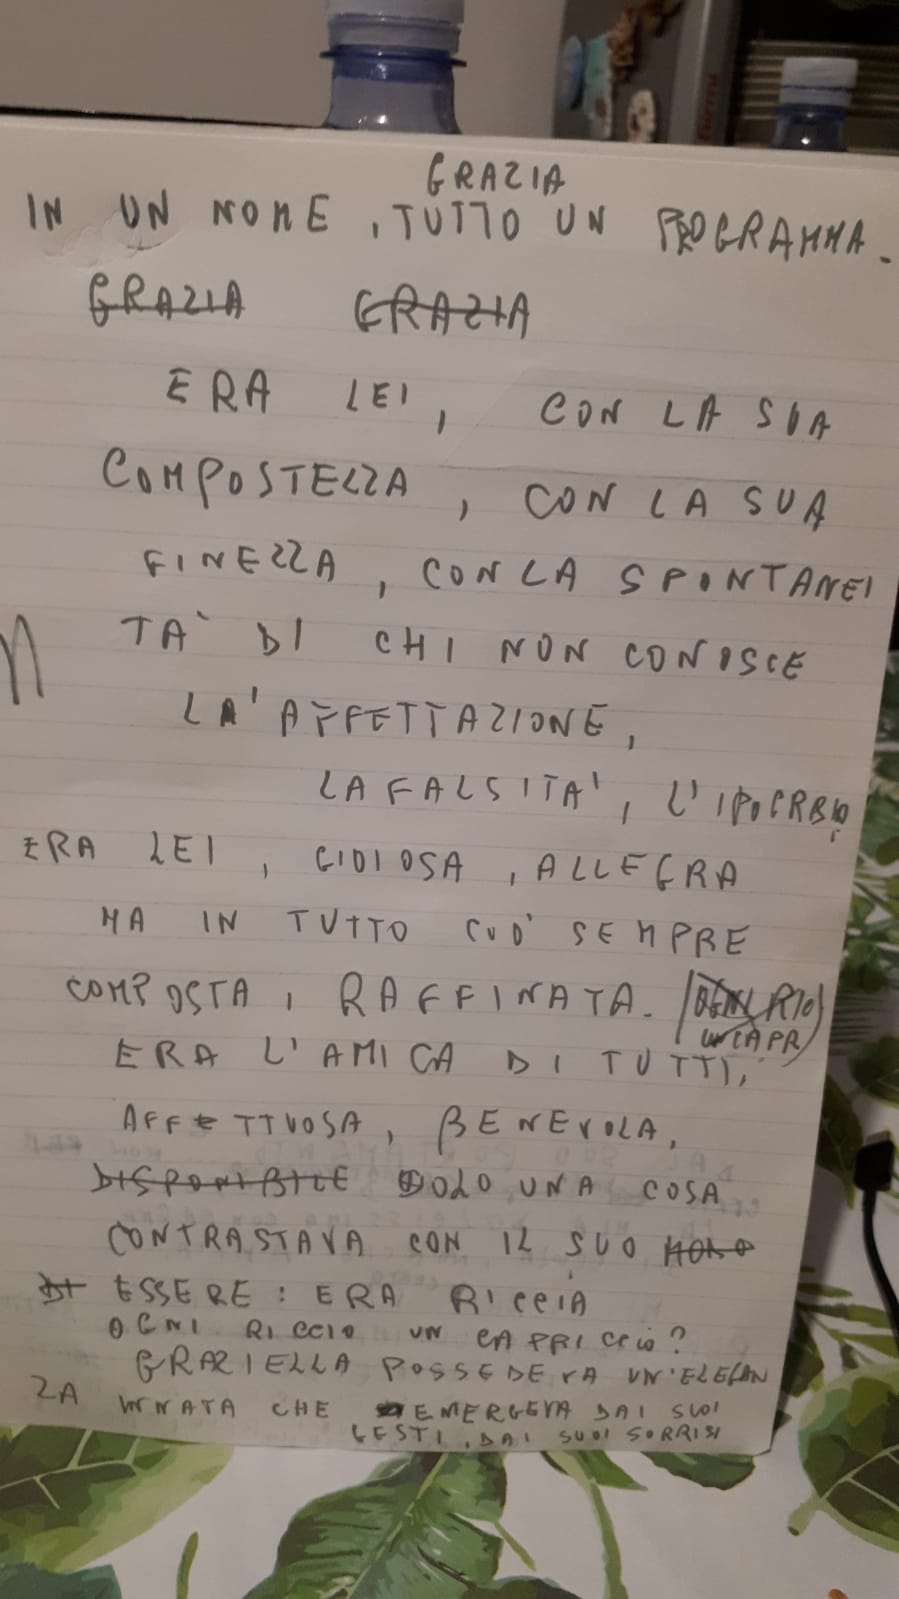 GRAZIA
IN UN NOME, TUTTO UN PROGRAMMA.
GRAZIA GRAZIA
ERA LEI, CON LA SUA
COMPOSTEZZA, CON LA SUA
FINEZZA, CON LA SPONTANEI
TA' DI CHI NON CONOSCE
LA' AFFETTAZIONE,
LA FALSITA', L'
ERA LEI, GIOIOSA, ALLEGRA
MA IN TUTTO CUO' SEMPRE
COMPOSTA, RAFFINATA. RIC
CAPR
ERA L'AMICA DI TUTTI,
AFFETTUOSA, BENEVOLA,
DISPONIBILE SOLO UNA COSA
CONTRASTAVA CON IL SUO MODO
DI ESSERE: ERA RICCIA
OGNI RICCIO UN CAPRICCIO?
GRAZIELLA POSSEDEVA UN'ELEGAN
ZA INNATA CHE EMERGEVA DAI SUOI
GESTI, DAI SUOI SORRISI